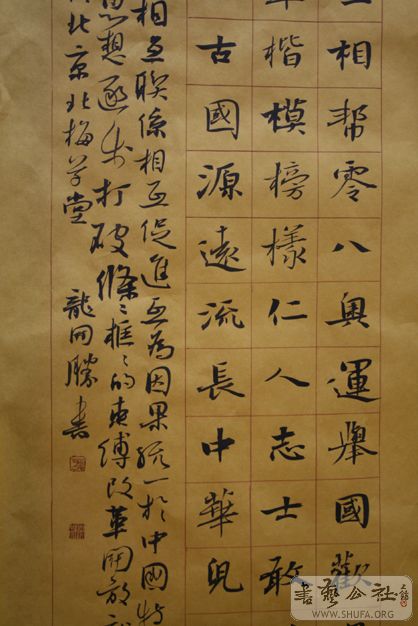 相帮零八奥運舉國歡
楷模榜樣仁人志士敢
古國源遠流長中華兒
相互聯係相互促進互爲因果统一於中國特
思想逐步打破條々框々的束縛改革開放
北京北梅草堂 龍回勝書
書藝公社
WWW.SHUFA.ORG